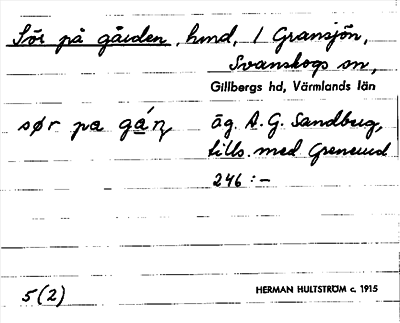 Sör på gården, hmd, 1 Gransjön,
Svanskogs sn,
Gillbergs hd, Värmlands län
sør pa gán̥ äg. A. G. Sandberg,
tills. med Grensund
246:-
5(2) HERMAN HULTSTRÖM c. 1915